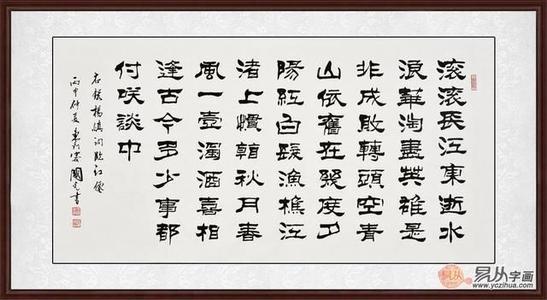 滾滾長江東逝水
浪華淘盡英雄是
非成敗轉頭空青
山依舊在幾度夕
陽紅白髮漁樵江
渚上慣看秋月春
風一壺濁酒喜相
逢古今多少事都
付咲談中
右錄楊慎詞臨江僊
丙申仲夏 書
易从
易从字画
www.yczihua.com